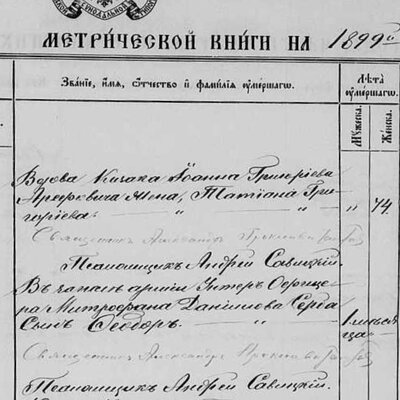 МЕТРИЧЕСКОЙ КНИГИ НА 1899й
Званіе, имя, отчество и фамилія умершаго.
Лѣта умершаго.
Мужеска.
Женска.
Вдова Козака Іоанна Григоріева
жена, Татіана Гри-
горіева — " — " — " 74.
Священникъ Александръ
Псаломщикъ Андрей Савицкій.
Въ запасѣ арміи Унтеръ Офице-
ра Митрофана Даніилова Серда
Сынъ Ѳеодоръ. — " 1 мѣсяца
Священникъ Александръ
Псаломщикъ Андрей Савицкій.